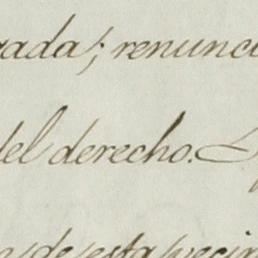 rada; renunci
del derecho.
de esta vecin